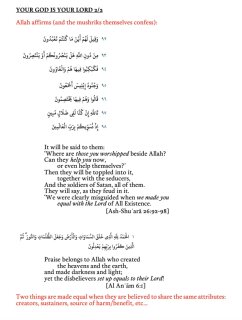 YOUR GOD IS YOUR LORD 2/2
Allah affirms (and the mushriks themselves confess):
٩٢ وَقِيلَ لَهُمْ أَيْنَ مَا كُنتُمْ تَعْبُدُونَ
٩٣ مِن دُونِ اللَّهِ هَلْ يَنصُرُونَكُمْ أَوْ يَنتَصِرُونَ
٩٤ فَكُبْكِبُوا فِيهَا هُمْ وَالْغَاوُونَ
٩٥ وَجُنُودُ إِبْلِيسَ أَجْمَعُونَ
٩٦ قَالُوا وَهُمْ فِيهَا يَخْتَصِمُونَ
٩٧ تَاللَّهِ إِن كُنَّا لَفِي ضَلَالٍ مُّبِينٍ
٩٨ إِذْ نُسَوِّيكُم بِرَبِّ الْعَالَمِينَ
It will be said to them:
'Where are those you worshipped beside Allah?
Can they help you now,
or even help themselves?'
Then they will be toppled into it,
together with the seducers,
And the soldiers of Satan, all of them.
They will say, as they feud in it.
'We were clearly misguided when we made you
equal with the Lord of All Existence.
[Ash-Shu'arā 26:92-98]
١ الْحَمْدُ لِلَّهِ الَّذِي خَلَقَ السَّمَاوَاتِ وَالْأَرْضَ وَجَعَلَ الظُّلُمَاتِ وَالنُّورَ ثُمَّ
الَّذِينَ كَفَرُوا بِرَبِّهِمْ يَعْدِلُونَ
Praise belongs to Allah who created
the heavens and the earth,
and made darkness and light;
yet the disbelievers set up equals to their Lord!
[Al An'ām 6:1]
Two things are made equal when they are believed to share the same attributes:
creators, sustainers, source of harm/benefit, etc...